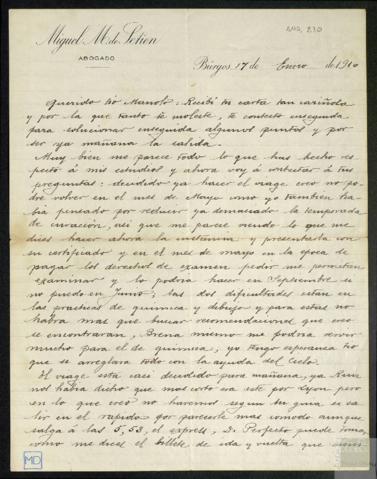 Miguel M. de Setien
ABOGADO
Búrgos 17 de Enero de 1910
Querido tio Manolo: Recibí tu carta tan cariñosa
y por la que tanto te molesté, te contesto enseguida
para solucionar enseguida algunos puntos y por
ser ya mañana la salida.
Muy bien me parece todo lo que has hecho res
pecto á mis estudios y ahora voy á contestar á tus
preguntas: decidido ya hacer el viage creo no po
dre volver en el mes de Mayo como yo tambien ha
bía pensado por reducir ya demasiado la temporada
de curación, asi que me parece viendo lo que me
dices hacer ahora la instancia y presentarla con
su certificado y en el mes de mayo en la epoca de
pagar los derechos de examen pedir me permitan
examinar y lo podria hacer en Septiembre si
no puedo en Junio; las dos dificultades estan en
las practicas de quimica y dibujo y para estas no
habra mas que buscar recomendaciones que creo
se encontraran, Brena mismo me podria servir
mucho para el de quimica, yo tengo esperanza en
que se arreglara todo con la ayuda del Cielo.
El viage esta casi decidido para mañana, ya
nos habia dicho que mas corto era este por Lyon pero
en lo que creo no haremos segun tu guia es sa
lir en el rapido por parecerle mas comodo aunque
salga á las 5,53, el express, D. Perfecto puede tomar
como me dices el billete de ida y vuelta que
MD